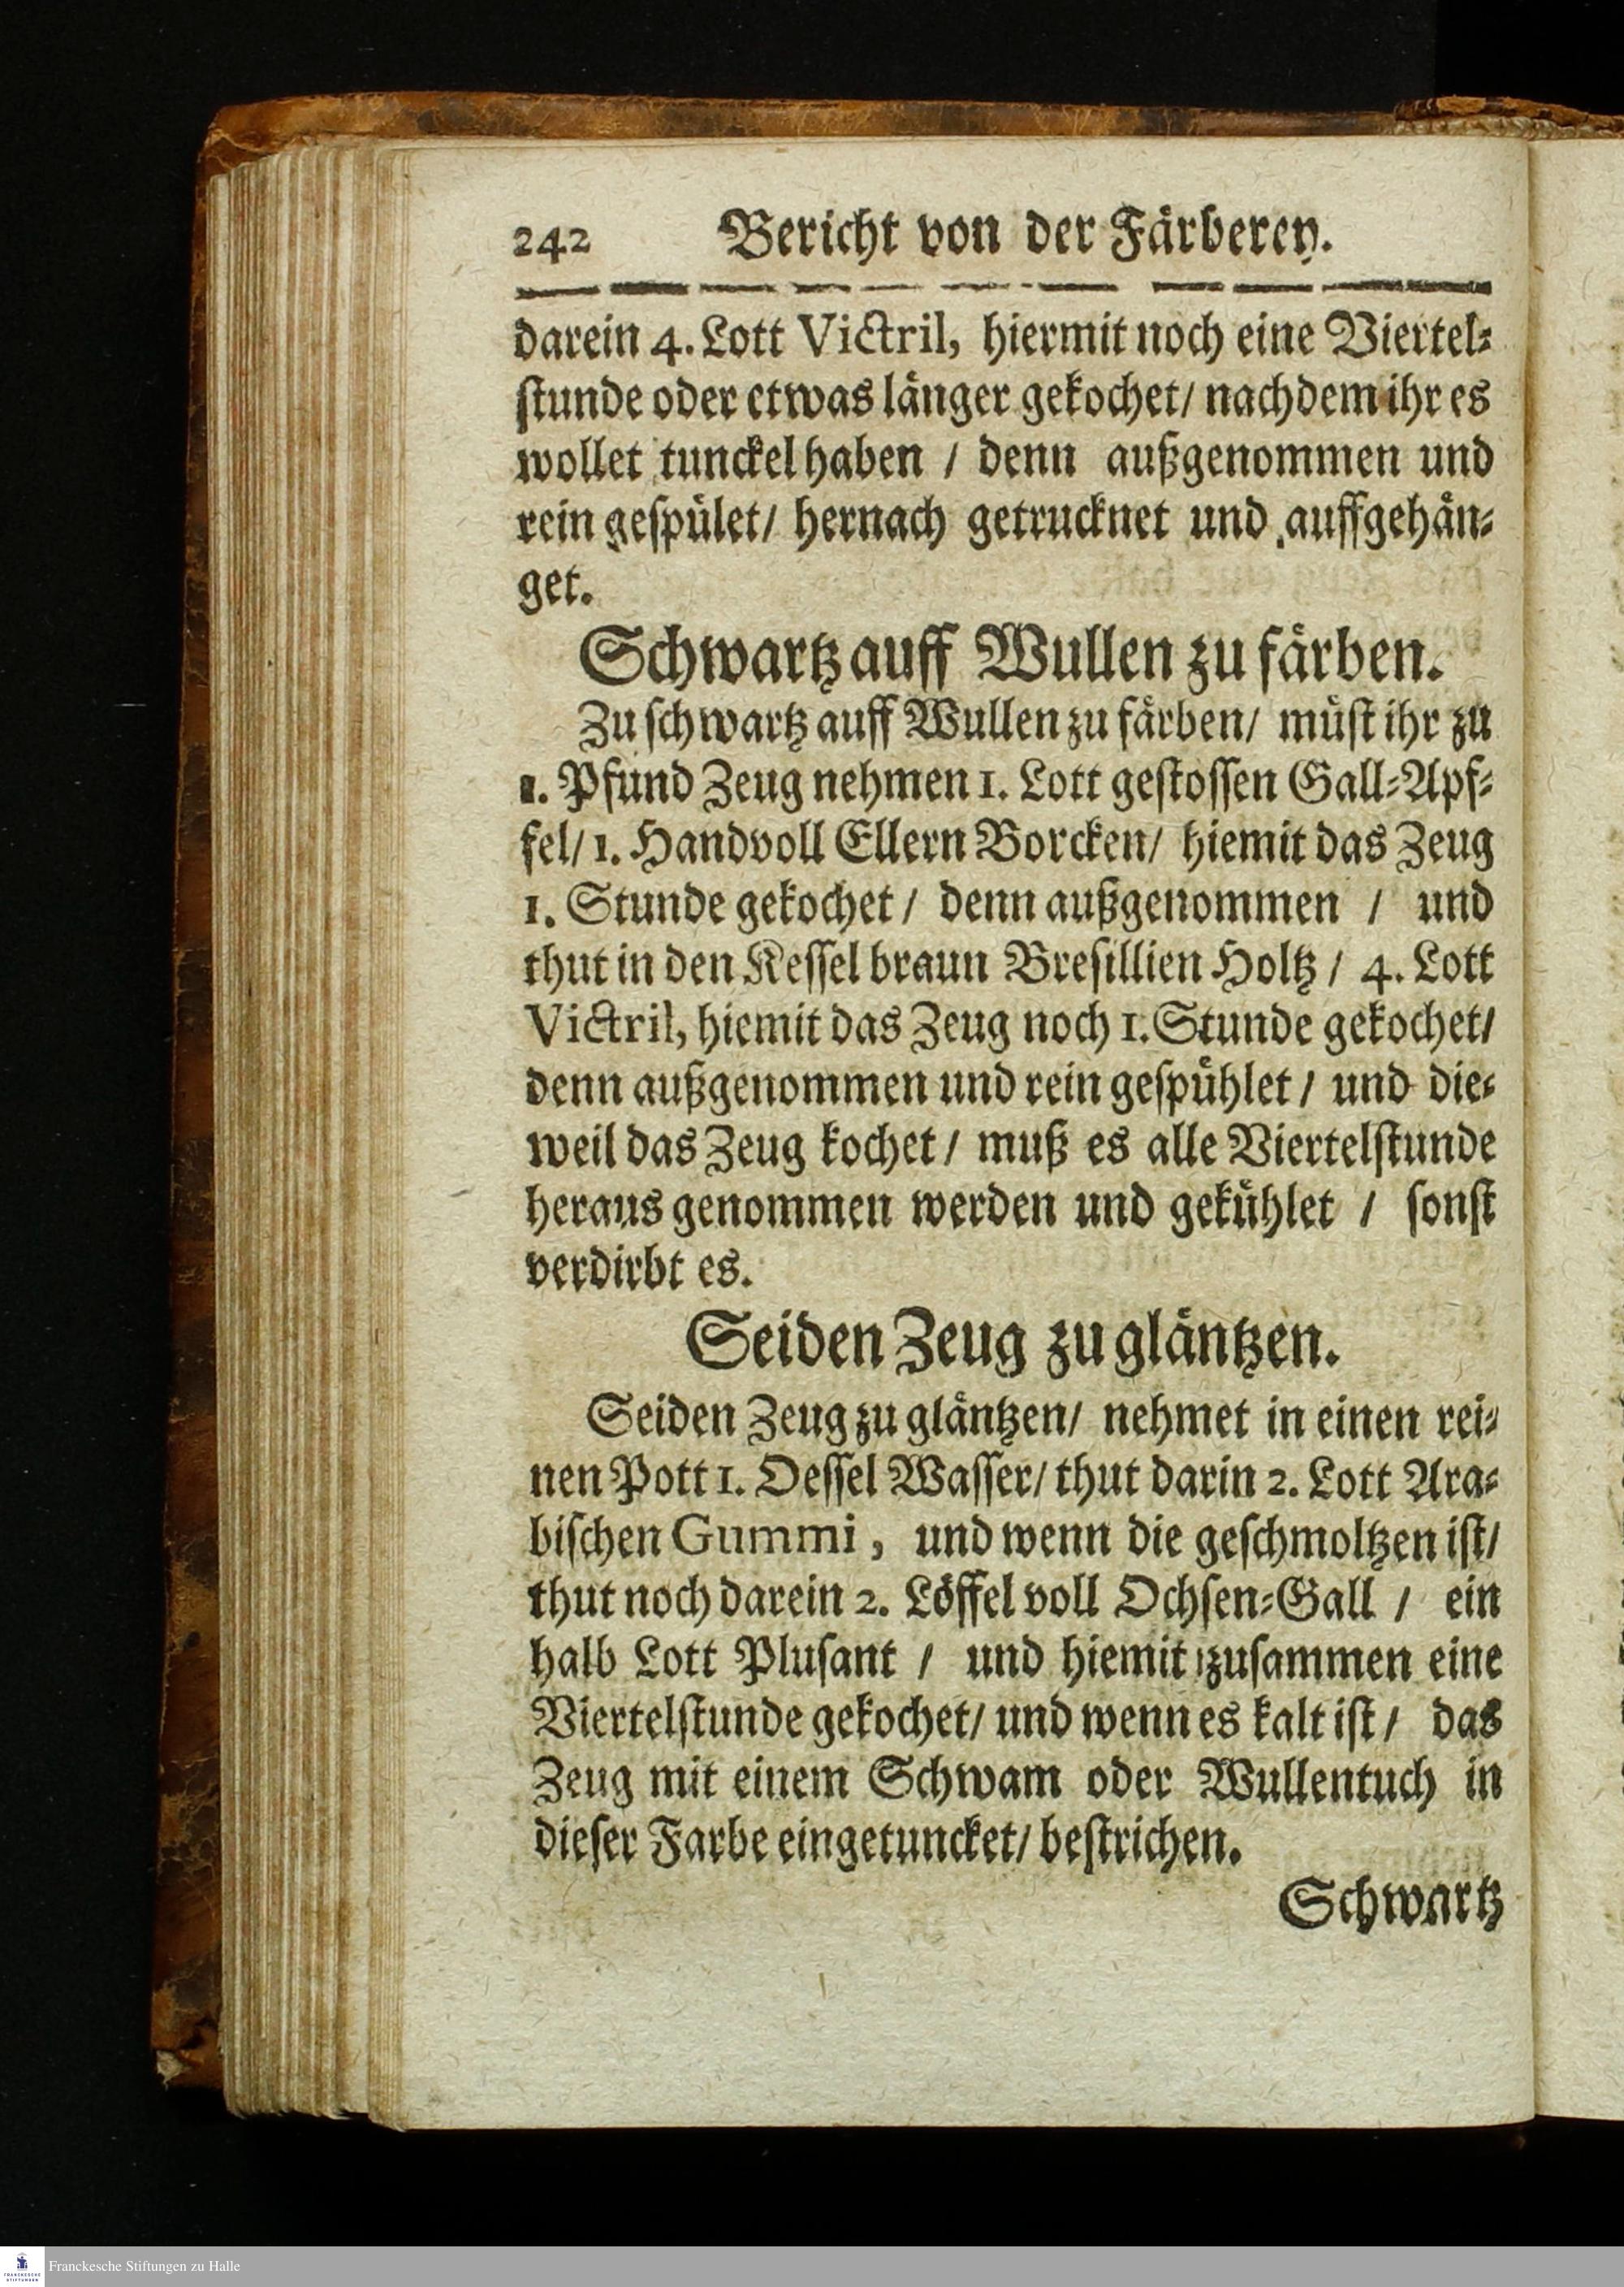 242 Bericht von der Färberey.
darein 4. Lott Victril, hiermit noch eine Viertel-
stunde oder etwas länger gekochet/ nachdem ihr es
wollet tunckel haben / denn außgenommen und
rein gespület/ hernach getrucknet und auffgehän-
get.
Schwartz auff Wullen zu färben.
Zu schwartz auff Wullen zu färben/ müst ihr zu
1. Pfund Zeug nehmen 1. Lott gestossen Gall-Apf-
fel/ 1. Handvoll Ellern Borcken/ hiemit das Zeug
1. Stunde gekochet / denn außgenommen / und
thut in den Kessel braun Bresillien Holtz / 4. Lott
Victril, hiemit das Zeug noch 1. Stunde gekochet/
denn außgenommen und rein gespühlet / und die-
weil das Zeug kochet / muß es alle Viertelstunde
heraus genommen werden und gekühlet / sonst
verdirbt es.
Seiden Zeug zu gläntzen.
Seiden Zeug zu gläntzen/ nehmet in einen rei-
nen Pott 1. Oessel Wasser/ thut darin 2. Lott Ara-
bischen Gummi, und wenn die geschmoltzen ist/
thut noch darein 2. Löffel voll Ochsen-Gall / ein
halb Lott Plusant / und hiemit zusammen eine
Viertelstunde gekochet/ und wenn es kalt ist / das
Zeug mit einem Schwam oder Wullentuch in
dieser Farbe eingetuncket/ bestrichen.
Schwartz
Franckesche Stiftungen zu Halle